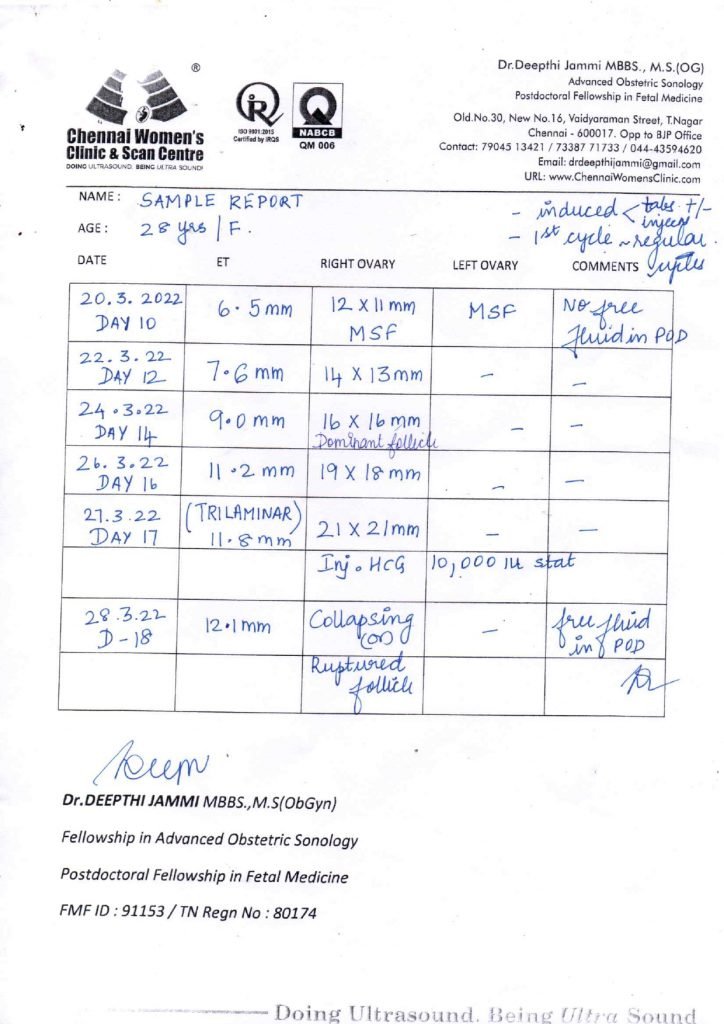 Dr.Deepthi Jammi MBBS., M.S.(OG)
Advanced Obstetric Sonology
Postdoctoral Fellowship in Fetal Medicine
Old.No.30, New No.16, Vaidyaraman Street, T.Nagar
Chennai - 600017. Opp to BJP Office
Contact: 79045 13421 / 73387 71733 / 044-43594620
Email: drdeepthijammi@gmail.com
URL: www.ChennaiWomensClinic.com
®
Chennai Women's
Clinic & Scan Centre
DOING ULTRASOUND, BEING ULTRA SOUND!
IR
ISO 9001:2015
Certified by IRQS
NABCB
QM 006
NAME: SAMPLE REPORT
AGE: 28 yrs / F.
- induced < tabs +/-
inject
- 1st cycle ~ regular
cycles
DATE ET RIGHT OVARY LEFT OVARY COMMENTS
20.3.2022 6.5mm 12 X 11 mm MSF No free
DAY 10 MSF fluid in POD
22.3.22 7.6 mm 14 X 13mm - -
DAY 12
24.3.22 9.0 mm 16 X 16 mm - -
DAY 14 Dominant follicle
26.3.22 11.2 mm 19 X 18 mm - -
DAY 16
27.3.22 (TRILAMINAR) 21 X 21mm - -
DAY 17 11.8mm
Inj. HCG 10,000 IU stat
28.3.22 12.1mm Collapsing - free fluid
D-18 (or) in POD
Ruptured
follicle
Dr.DEEPTHI JAMMI MBBS.,M.S(ObGyn)
Fellowship in Advanced Obstetric Sonology
Postdoctoral Fellowship in Fetal Medicine
FMF ID : 91153 / TN Regn No : 80174
Doing Ultrasound. Being Ultra Sound